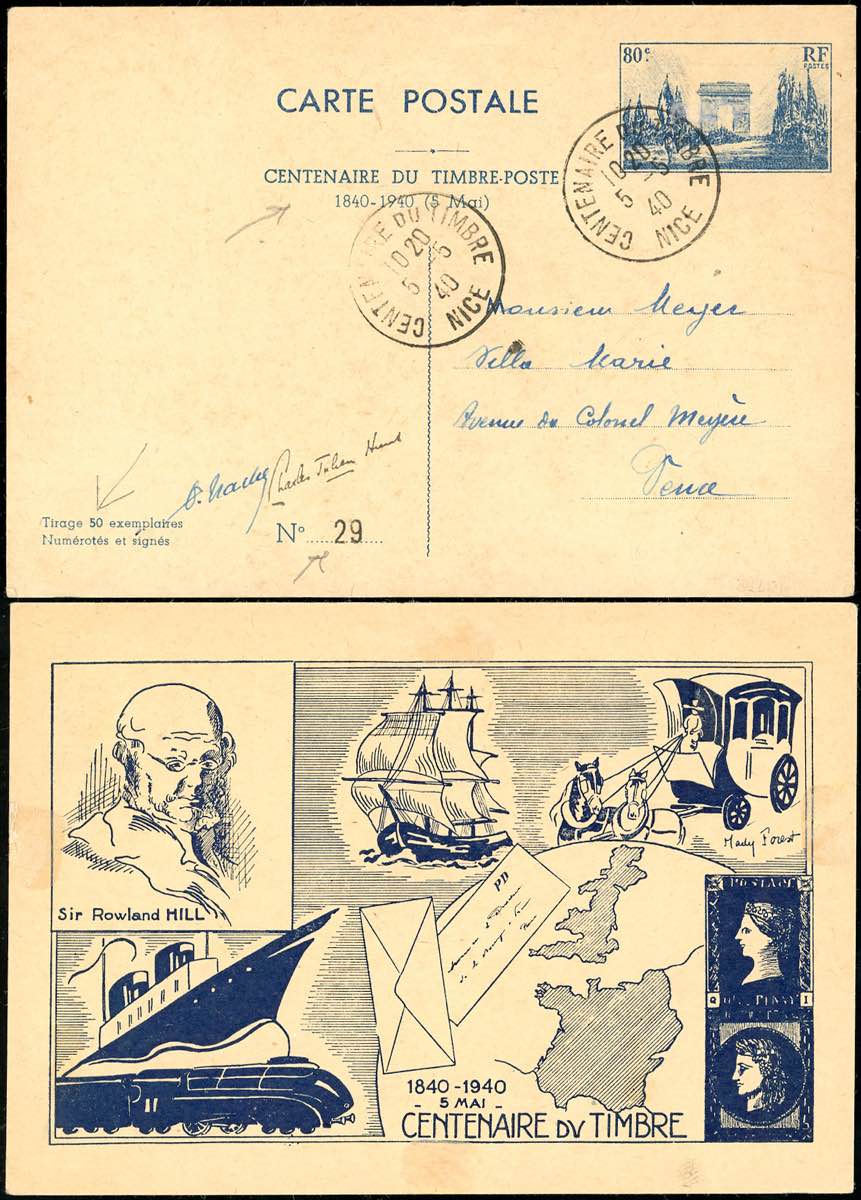 80c.
RF
POSTES
CARTE POSTALE
CENTENAIRE DU TIMBRE-POSTE
1840-1940 (5 Mai)
CENTENAIRE DU TIMBRE
10 20
5 -5
40
NICE
CENTENAIRE DU TIMBRE
10 20
5 -5
40
NICE
Monsieur Meyer
Villa Marie
Avenue du Colonel Meyère
Vence
Charles Julien
Tirage 50 exemplaires
Numérotés et signés
N° 29
Sir Rowland HILL
Mady Forest
PD
POSTAGE
Q ONE PENNY I
1840-1940
- 5 MAI -
CENTENAIRE DV TIMBRE